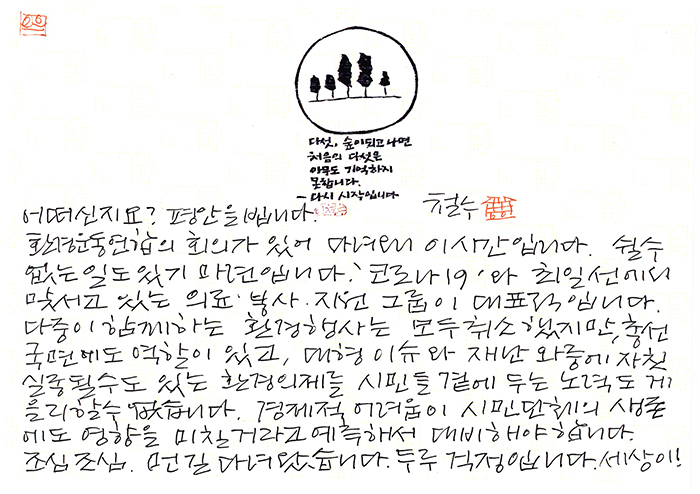 다섯, 숲이 되고 나면
처음의 다섯은
아무도 기억하지
못합니다.
- 다시 시작입니다
철수
어떠신지요? 평안을 빕니다.
환경운동연합의 회의가 있어 다녀오니 이시간입니다. 쉴수
없는 일도 있기 마련입니다. '코로나19'와 최일선에서
맞서고 있는 의료·봉사·지원 그룹이 대표적입니다.
다중이 함께하는 환경행사는 모두 취소했지만, 총선
국면에도 역할이 있고, 대형 이슈와 재난 와중에 자칫
실종될수도 있는 환경의제를 시민들 곁에 두는 노력도 게
을리할수 없습니다. 경제적 어려움이 시민단체의 생존
에도 영향을 미칠거라고 예측해서 대비해야 합니다.
조심 조심. 먼길 다녀왔습니다. 두루 걱정입니다. 세상이!